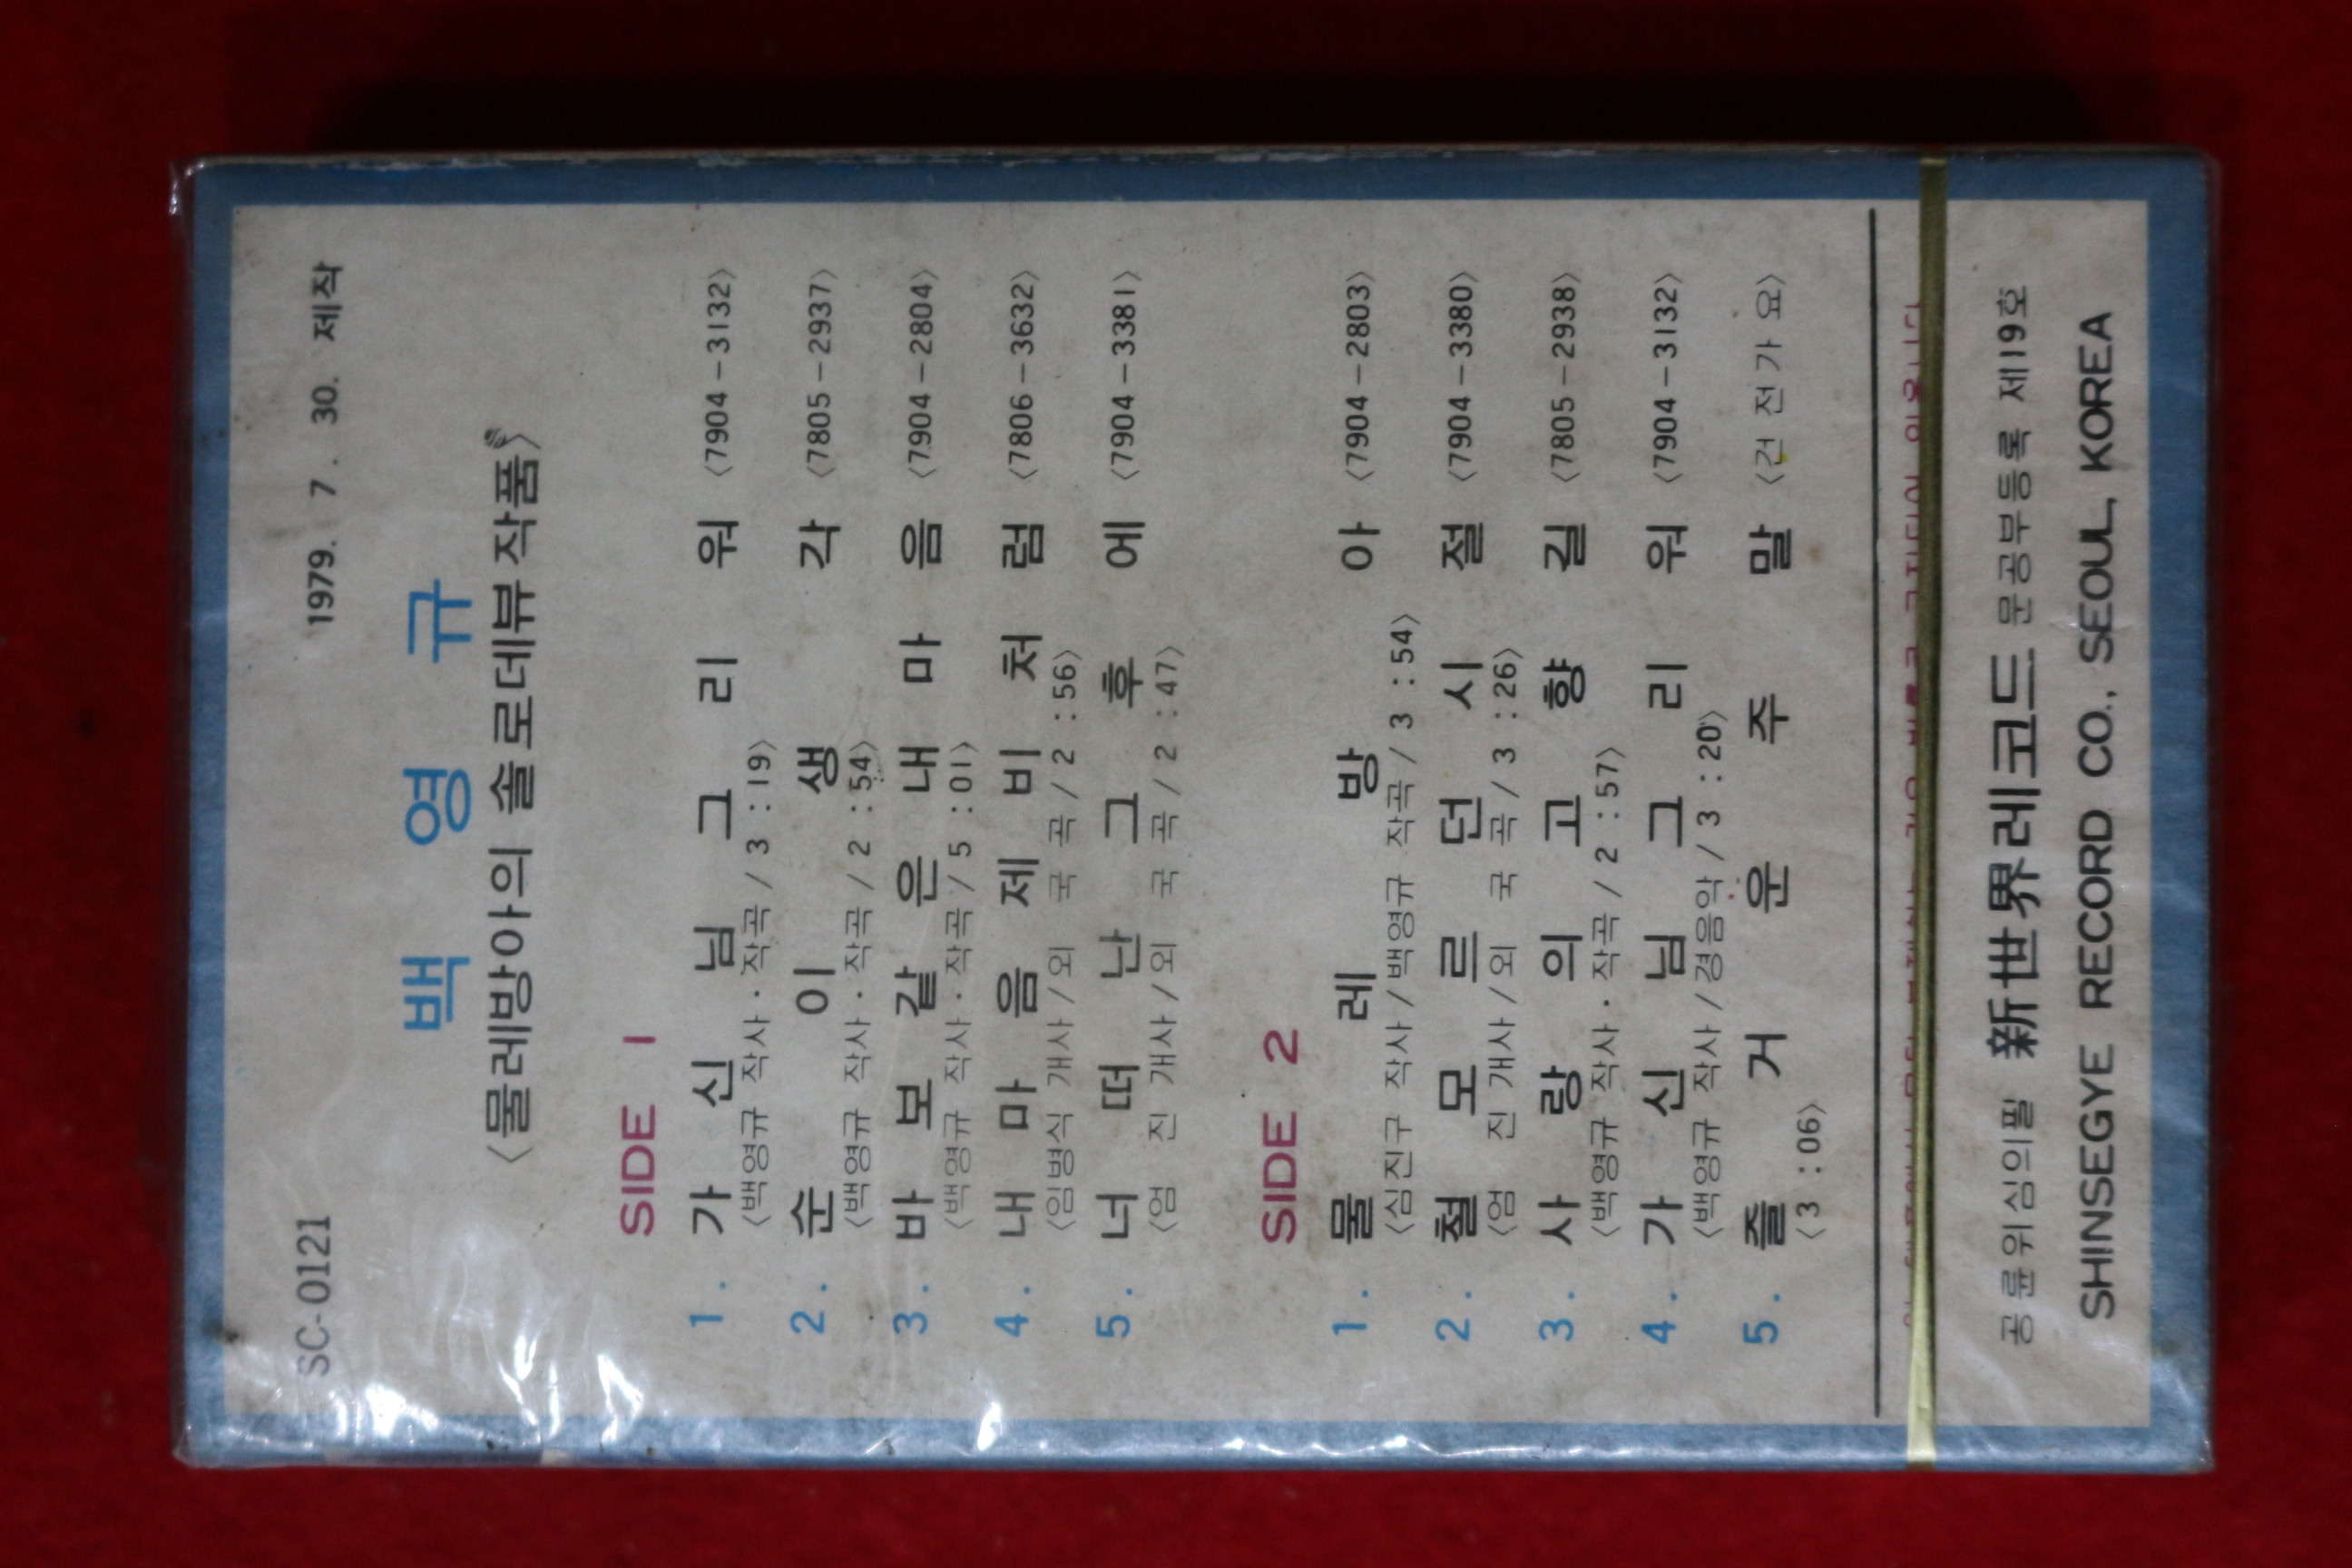 SC-0121 1979. 7. 30. 제작
백 영 규
〈물레방아의 솔로데뷰작품〉
SIDE 1
1. 가 신 님 그 리 워 〈7904-3132〉
〈백영규 작사·작곡/3:19〉
2. 순 이 생 각 〈7805-2937〉
〈백영규 작사·작곡/2:54〉
3. 바 보 같 은 내 마 음 〈7904-2804〉
〈백영규 작사·작곡/5:01〉
4. 내 마 음 제 비 처 럼 〈7806-3632〉
〈임병식 개사/외 국 곡/2:56〉
5. 너 떠 난 그 후 에 〈7904-3381〉
〈엄 진 개사/외 국 곡/2:47〉
SIDE 2
1. 물 레 방 아 〈7904-2803〉
〈심진구 작사/백영규 작곡/3:54〉
2. 철 모 르 던 시 절 〈7904-3380〉
〈엄 진 개사/외 국 곡/3:26〉
3. 사 랑 의 고 향 길 〈7805-2938〉
〈백영규 작사·작곡/2:57〉
4. 가 신 님 그 리 워 〈7904-3132〉
〈백영규 작사/경음악/3:20〉
5. 즐 거 운 주 말 〈건 전 가 요〉
〈3:06〉
공륜위심의필 新世界레코드 문공부등록 제19호
SHINSEGYE RECORD CO., SEOUL, KOREA